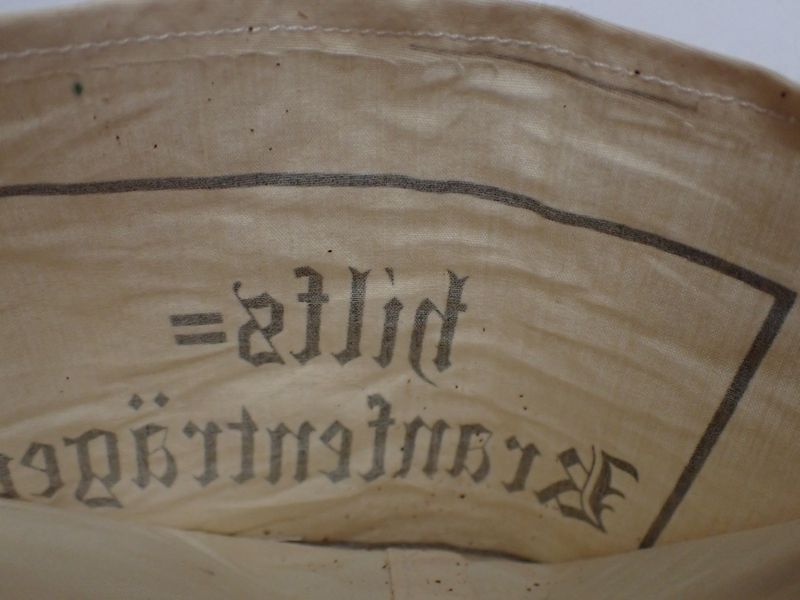 hilfs=
Krankenträger